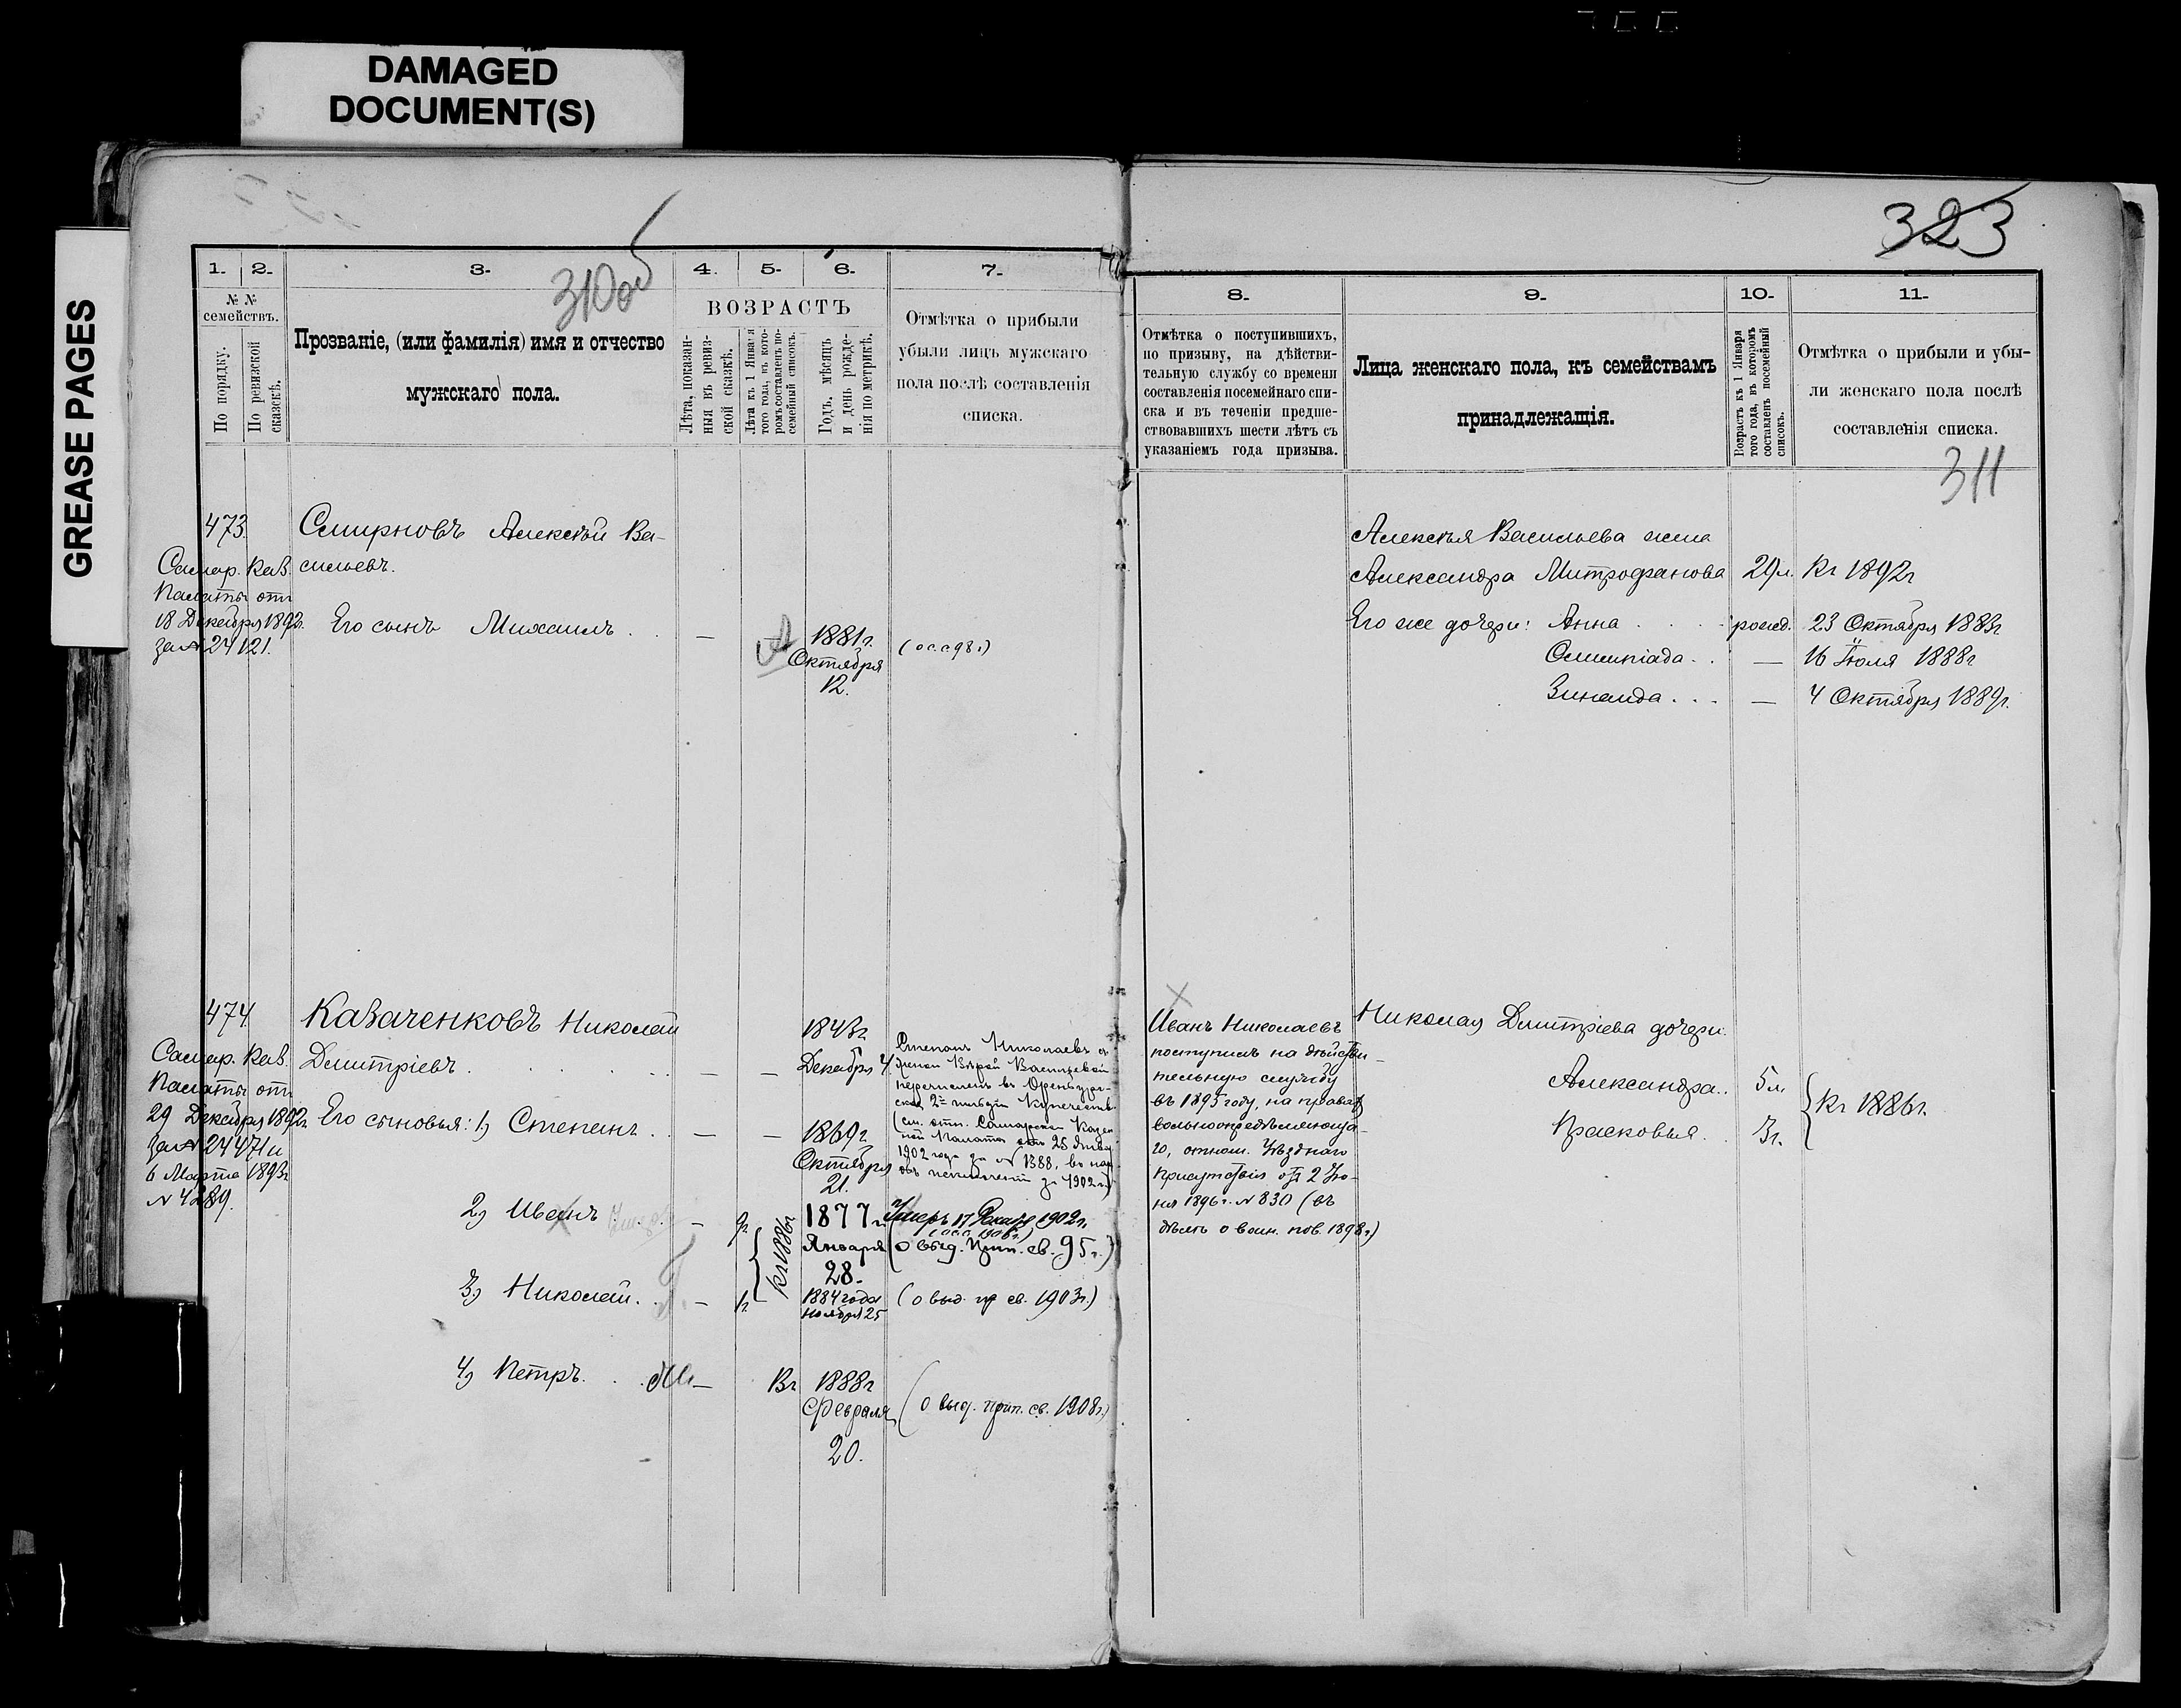 DAMAGED
DOCUMENT(S)
GREASE PAGES
323
310 об
311
1.
2.
3.
4.
5.
6.
7.
№ №
семействъ.
По порядку.
По ревизской
сказкѣ.
Прозваніе, (или фамилія) имя и отчество
мужскаго пола.
ВОЗРАСТЪ
Лѣта, показан-
ныя въ ревиз-
ской сказкѣ.
Лѣта къ 1 Января
того года, въ кото-
ромъ составленъ по-
семейный списокъ.
Годъ, мѣсяцъ
и день рожде-
нія по метрикѣ.
Отмѣтка о прибыли
убыли лицъ мужскаго
пола послѣ составленія
списка.
8.
9.
10.
11.
Отмѣтка о поступившихъ,
по призыву, на дѣйстви-
тельную службу со времени
составленія посемейнаго спи-
ска и въ теченіи предше-
ствовавшихъ шести лѣтъ съ
указаніемъ года призыва.
Лица женскаго пола, къ семействамъ
принадлежащія.
Возрастъ къ 1 Января
того года, въ которомъ
составленъ посемейный
списокъ.
Отмѣтка о прибыли и убы-
ли женскаго пола послѣ
составленія списка.
473.
Самар. Каз.
Палаты отъ
18 Декабря 1892г.
за № 24121.
Смирновъ Алексѣй Ва-
сильевъ.
Его сынъ Михаилъ . . —
1881г.
Октября
12.
(о с. с 98 г)
Алексѣя Васильева жена
Александра Митрофанова 29 л. Къ 1892г
Его же дочери: Анна . . . рожд. 23 Октября 1883г
Олимпіада . . — 16 Іюля 1888г
Зинаида . . . — 4 Октября 1889г.
474.
Самар. Каз.
Палаты отъ
29 Декабря 1892г.
за № 24471 и
6 Марта 1893г
№ 4289.
Казаченковъ Николай
Дмитріевъ . . . . . — —
1843г
Декабря 4
Его сыновья: 1) Степанъ . . — —
1869г.
Октября
21.
Степанъ Николаевъ съ
женой Вѣрой Васильевой
перечисленъ въ Оренбург-
ское 2й гильдіи купечество
(см. отн. Самарской Казен-
ной Палаты отъ 25 Января
1902 года за № 1388, въ нар
2) Иванъ — 9г
1877г
Января
28.
Умеръ 17 Декабр. 1902г.
(о с. с. 1906 г.)
(о выд. прип. св. 95 г.)
3) Николай . . — 1г
Къ 1886г
1884 года
Ноября 25
(о выд. пр св. 1903г.)
4) Петръ . . . —
1888г
Февраля
20.
(о выд. прип. св. 1908г.)
Иванъ Николаевъ
поступилъ на дѣйстви-
тельную службу
въ 1895 году, на правахъ
вольноопредѣляюща-
го, отнош. Уѣзднаго
Присутствія отъ 2 Ію-
ня 1896г. № 830 (въ
дѣлѣ о воин. пов. 1898г)
Николая Дмитріева дочери:
Александра . . 5 л
Прасковья . . 3г.
Къ 1886г.